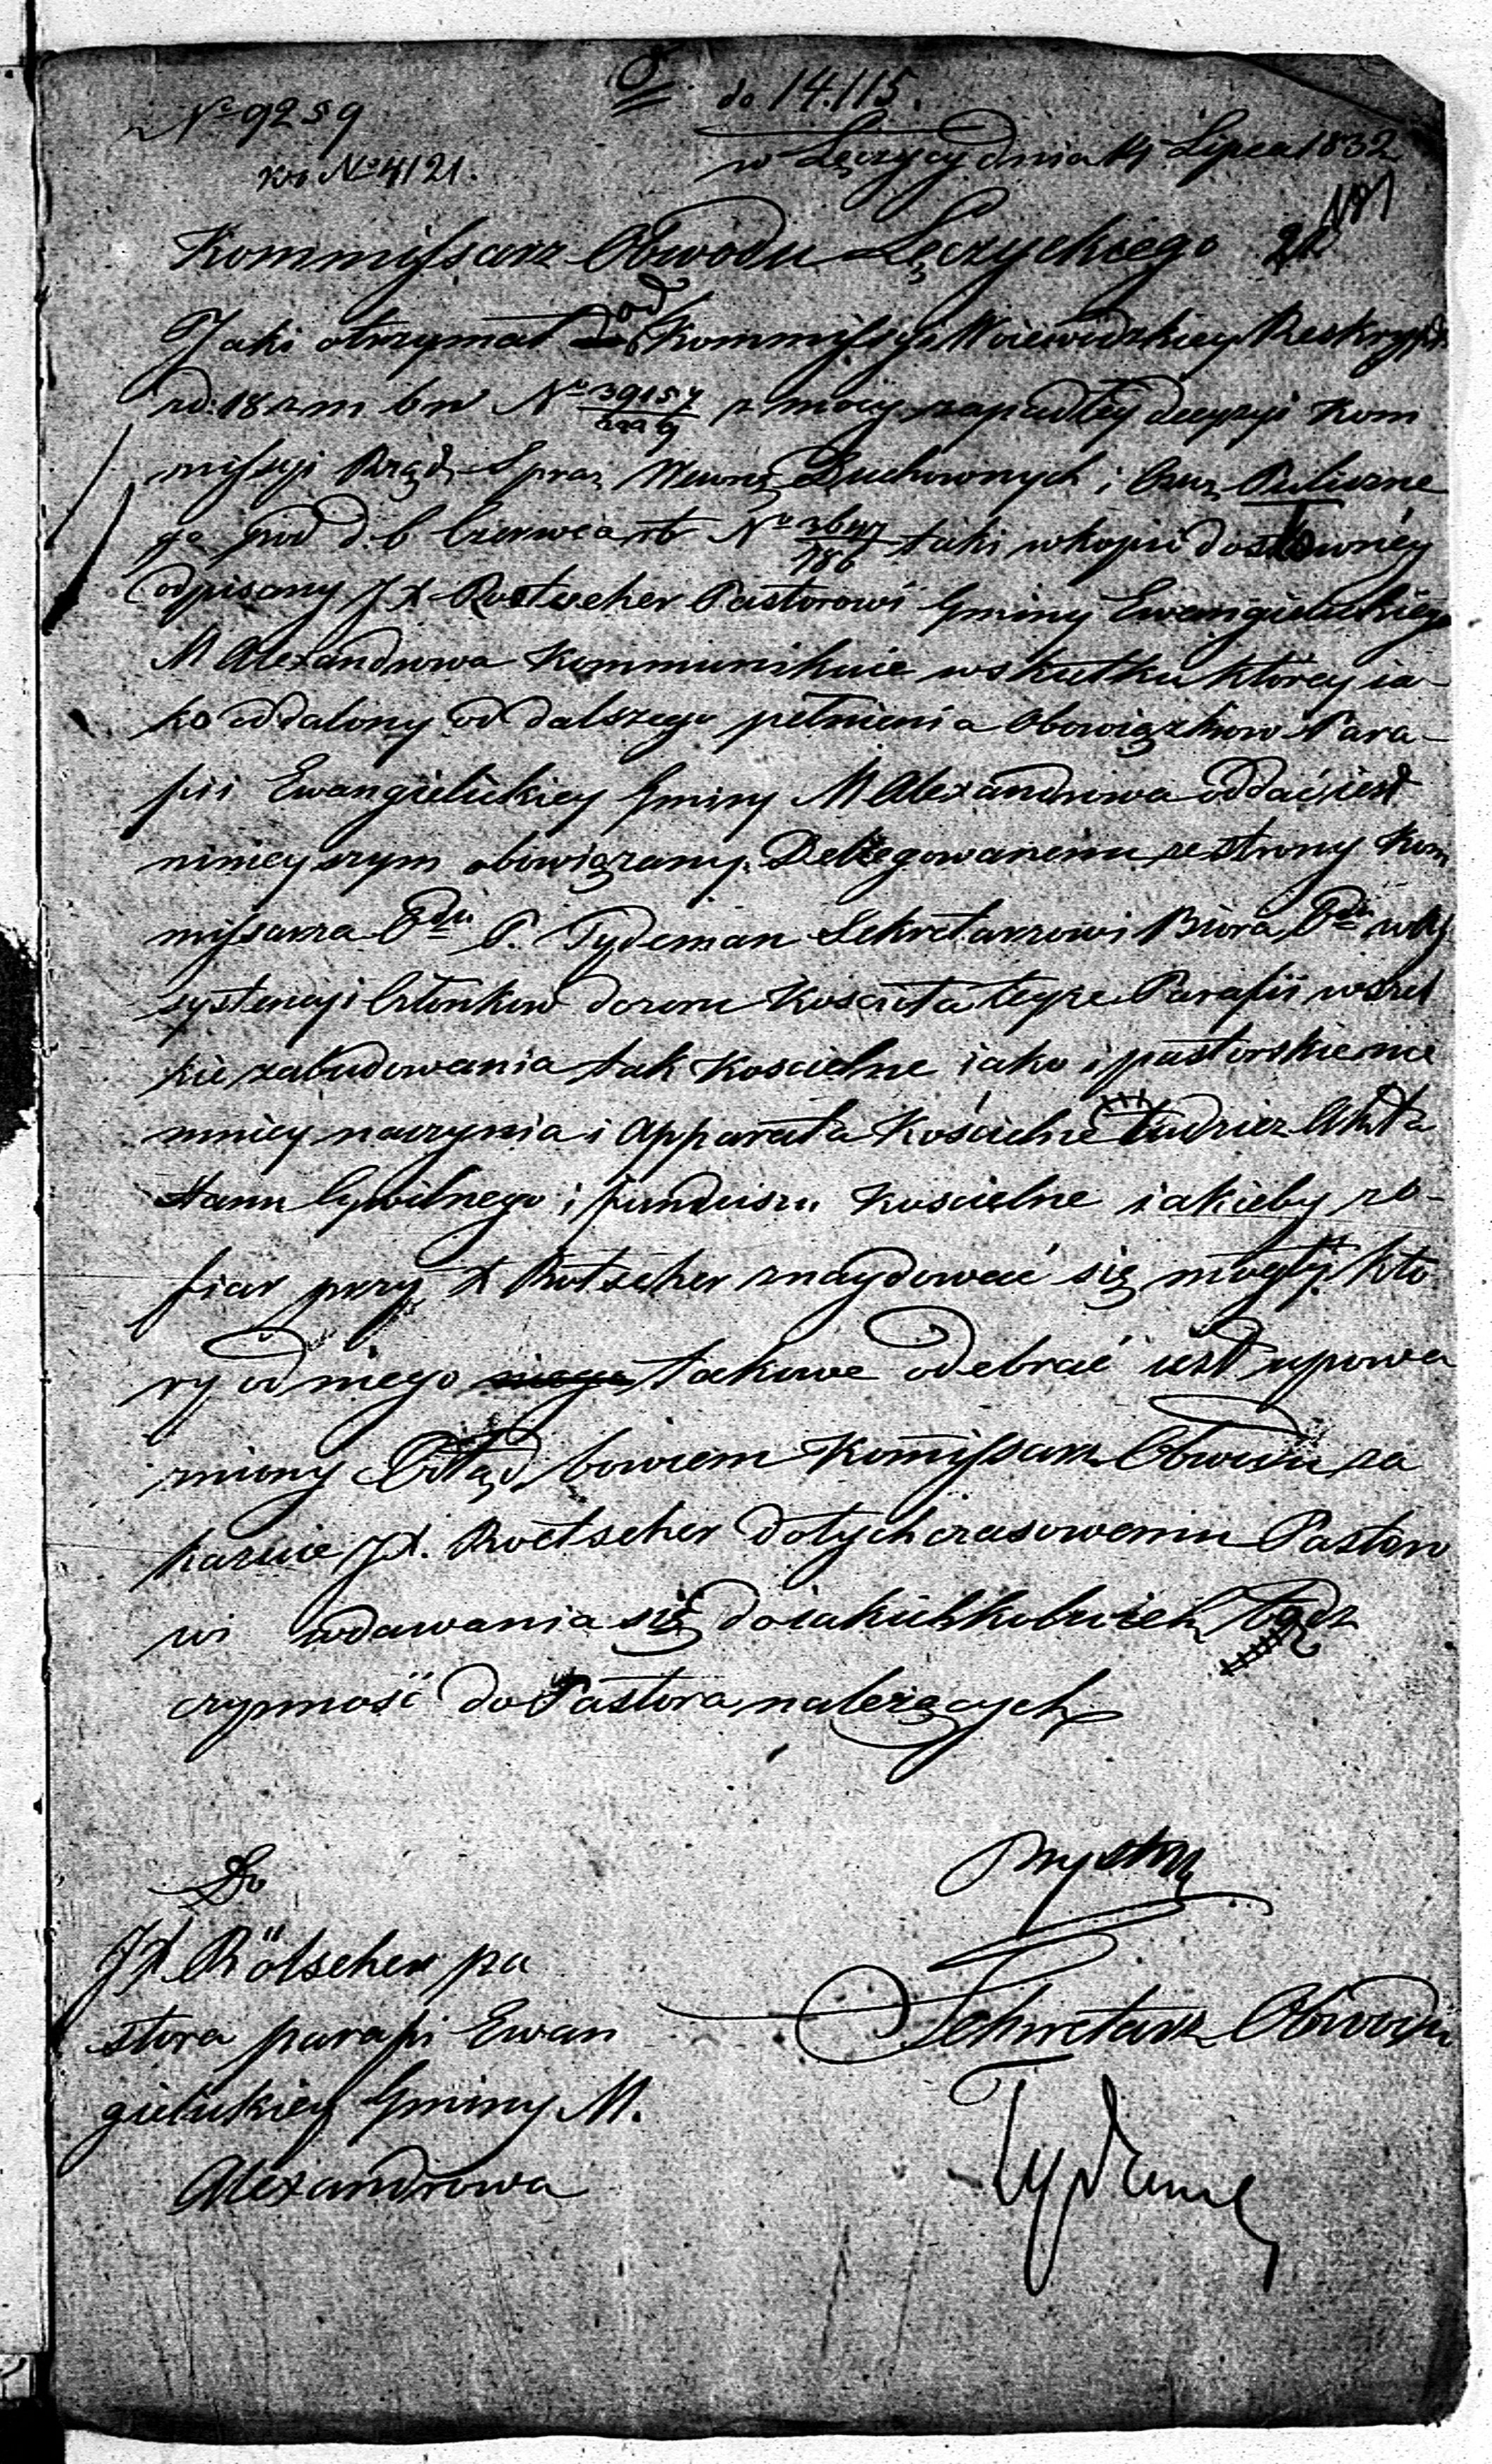 do 14.115.
No 9259
No 4121.
w Łęczycy dnia 14 Lipca 1832
Kommissarz Obwodu Łęczyckiego
Jaki otrzymał od Kommissyi Woiewodzkiey Reskrypt
z d: 18 z m b r No 39154
z mocy zapadłey decyzyi Kom
missyi Rząd. Spraw Wewnę. Duchownych i Oświ. Publiczne
go pod d. 6 Czerwca rb No taki w kopii dosłowney
odpisany JX Roetscher Pastorowi Gminy Ewangielickiego
M Alexandrowa Kommunikuie w skutku którey ia-
ko oddalony od dalszego pełnienia Obowiązkow Para-
fii Ewangielickiey Gminy M Alexandrowa oddać iest
ninieyszym obowiązany. Delegowanemu ze strony Kom
missarza Odu P. Tydeman Sekretarzowi Biora Odu w As
systencyi Członkow dozoru Kościoła teyże Parafii wszel
kie zabudowania tak Koscielne iako i pastorskie nie
mniey naczynia i Apparata Kościelne tudzież Akta
Stanu Cywilnego i fundusze Koscielne iakieby z o-
fiar przy X Rötscher znaydować się mogły. Któ
ry od niego takowe odebrać iest upowa
żniony Odtąd bowiem Kommissarz Obwodu za
kazuie JX. Roetscher dotychczasowemu Pastoro
wi wdawania się do iakichkolwiek bądz
czynność do Pastora należących
Do
JX Rötscher pa
stora parafi Ewan
gielickiey Gminy M.
Alexandrowa
Sekretarz Obwodu
Tydeman